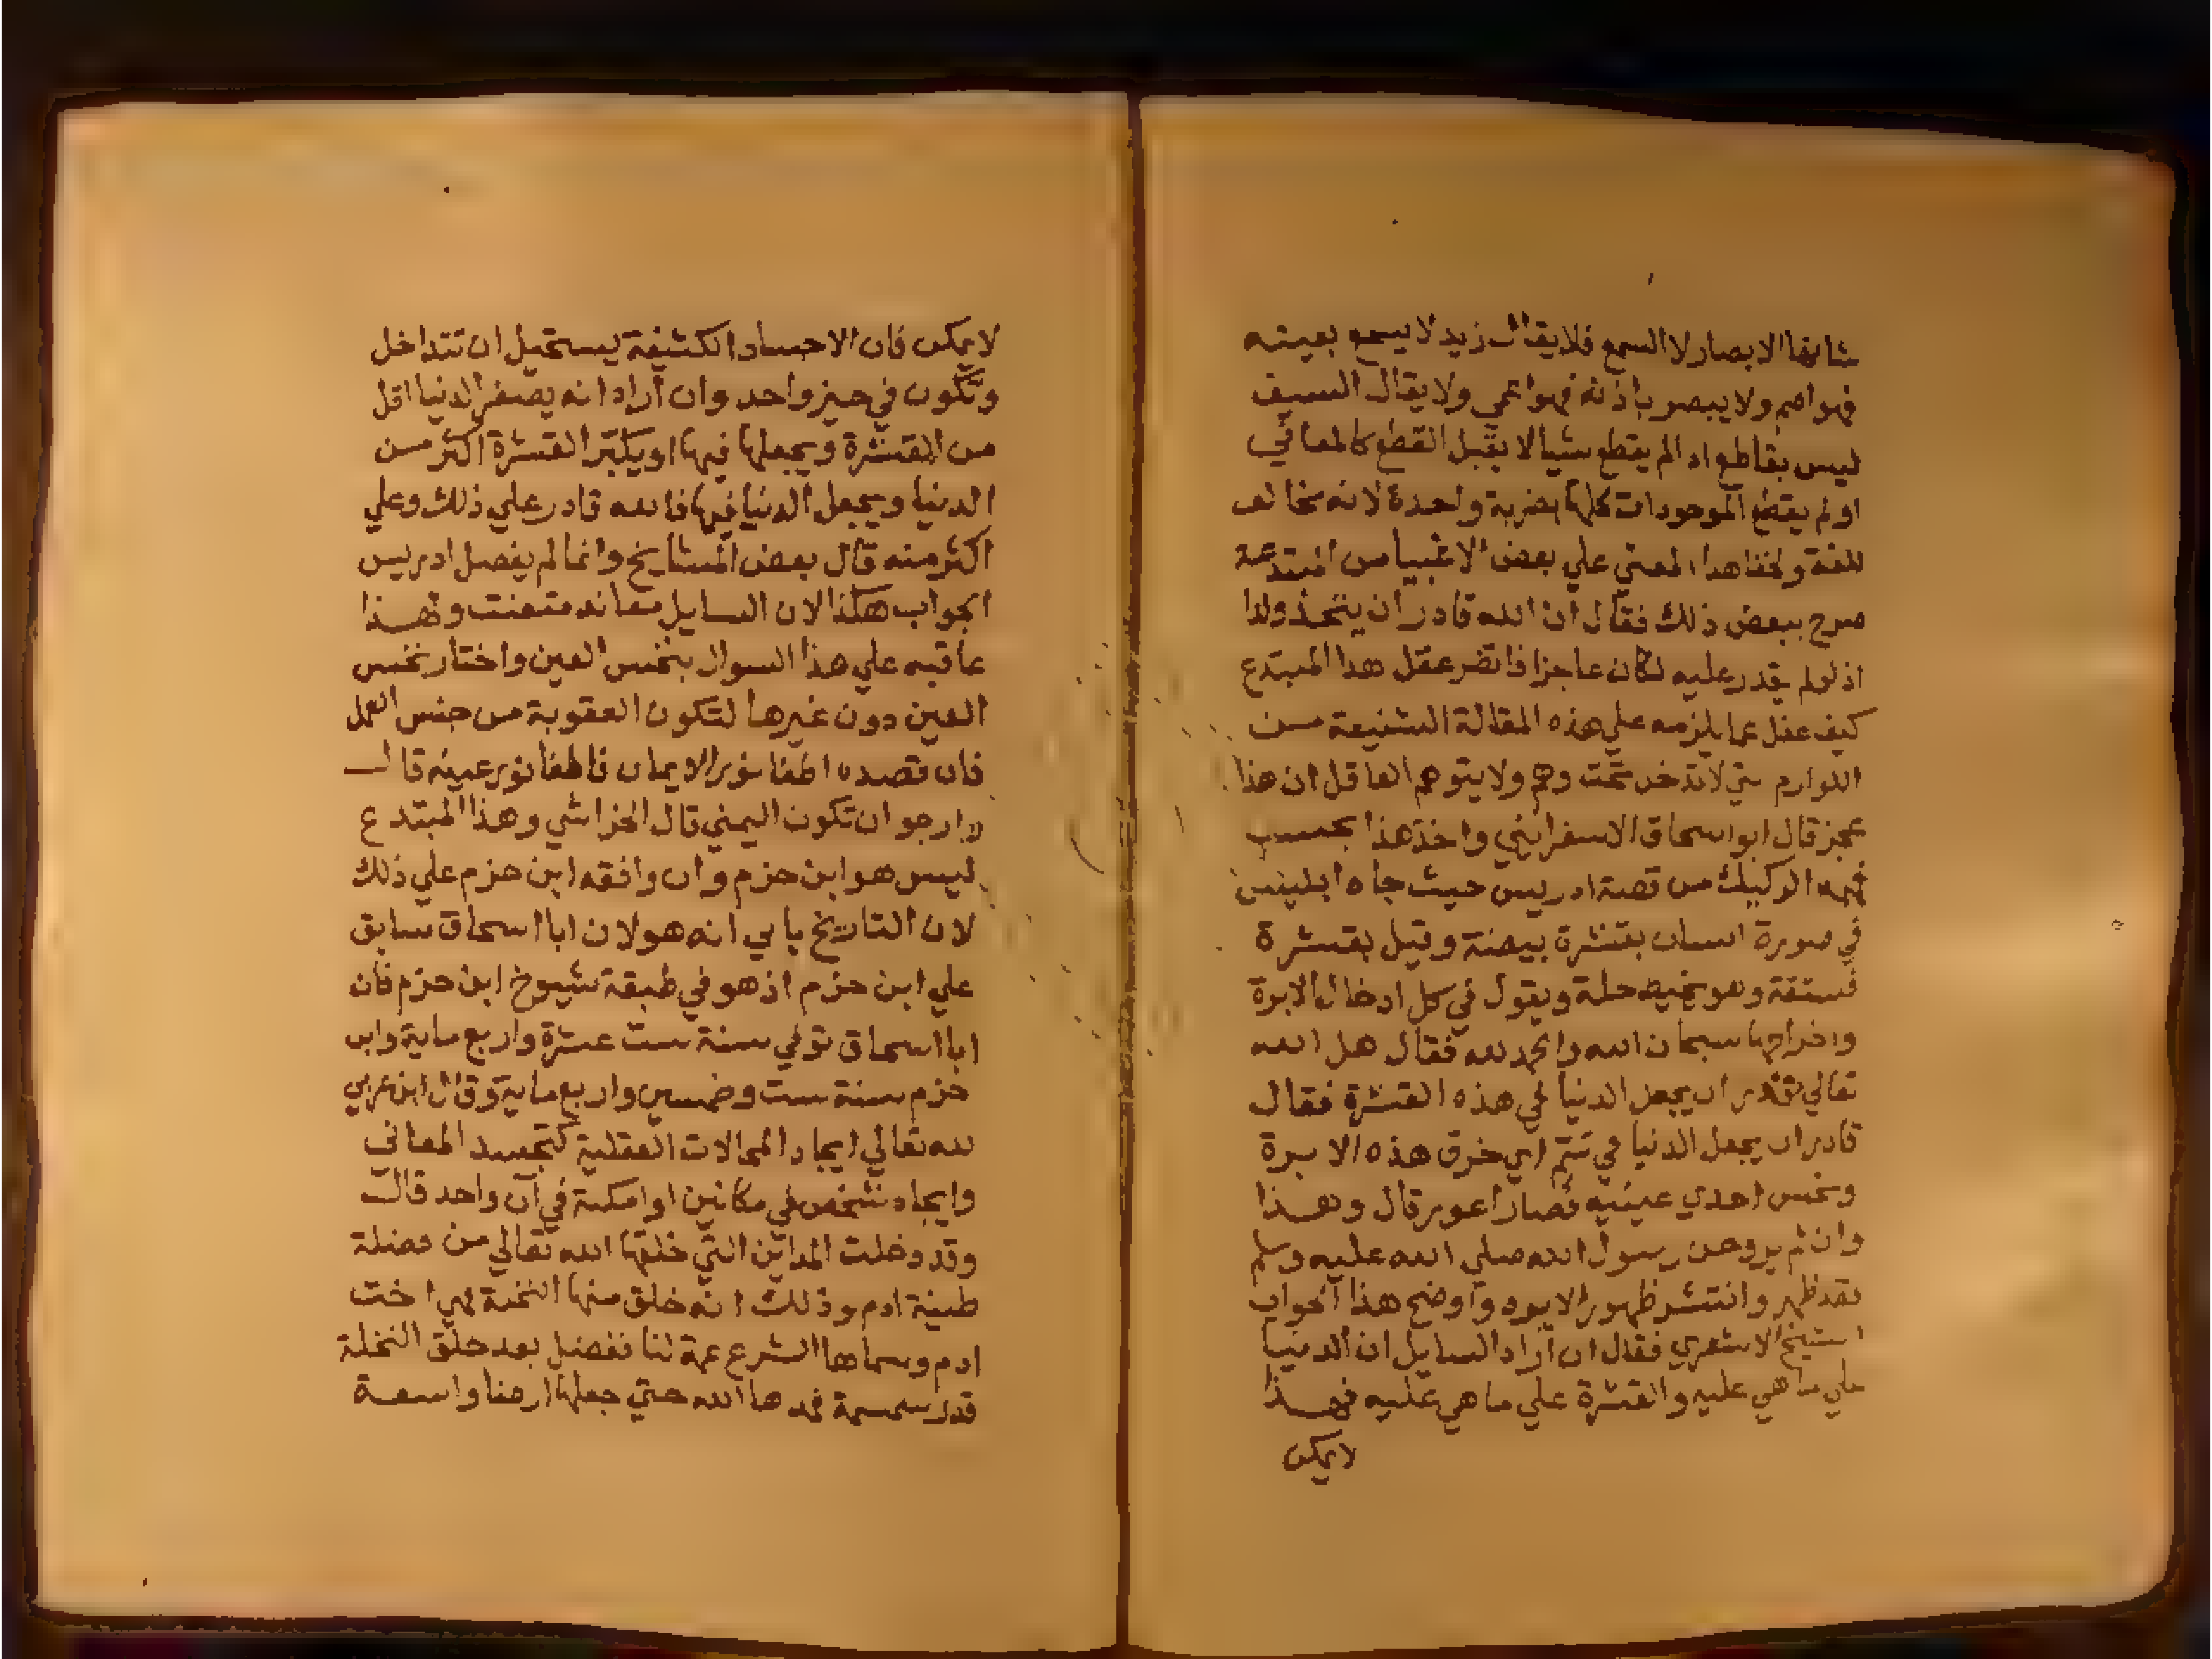 شانها الابصار لا السمع فلا يقال زيد لا يسمع بعينه
فهو اصم ولا يبصر باذنه فهو اعمي ولا يقال السيف
ليس بقاطع اذ الم يقطع شيا لا يقبل القطع كالمعاني
او لم يقطع الموجودات كلها بضربة واحدة لانه مخالف
للغة ولخفا هدا المعني علي بعض الاغبيا من المبتدعة
صرح ببعض ذلك فقال ان الله قادر ان يتخذ ولدا
اذ لو لم يقدر عليه لكان عاجزا فانضر عقل هدا المبتدع
كيف غفل عما يلزمه علي هذه المقالة الشنيعة من
اللوازم التي لا تدخل تحت وهم ولا يتوهم العاقل ان هذا
عجز قال ابو اسحاق الاسفرايني واخذ هذا بحسب
فهمه الركيك من قصة ادريس حيث جاه ابليس
في صورة انسان بقشرة بيضة وقيل بقشرة
فستقة وهو يخيط حلة ويقول في كل ادخال الابرة
واخراجها سبحان الله والحمد لله فقال هل الله
تعالي يقدر ان يجعل الدنيا في هذه القشرة فقال
قادر ان يجعل الدنيا في سم اي خرق هذه الابرة
ونخس احدي عينيه فصار اعور قال وهذا
وان لم يرو عن رسول الله صلي الله عليه وسلم
فقد ظهر وانتشر ظهورا لا يرد واوضح هذا الجواب
الشيخ الاشعري فقال ان اراد السايل ان الدنيا
علي ما هي عليه والقشرة علي ما هي عليه فهذا
لا يمكن
لا يمكن فان الاجساد الكثيفة يستحيل ان تتداخل
وتكون في حيز واحد وان اراد انه يصغر الدنيا اقل
من القشرة ويجعلها فيها او يكبر القشرة اكثر من
الدنيا ويجعل الدنيا فيها فالله قادر علي ذلك وعلي
اكثر منه قال بعض المشايخ وانما لم يفصل ادريس
الجواب هكذا لان السايل معاند متعنت ولهذا
عاقبه علي هذا السوال بنخس العين واختار نخس
العين دون غيرها لتكون العقوبة من جنس العمل
فان قصده اطفا نور الايمان فاطفا نور عينه قال
وارجو ان تكون اليمني قال الخراشي وهذا المبتدع
ليس هو ابن حزم وان وافقه ابن حزم علي ذلك
لان التاريخ يابي انه هو لان ابا اسحاق سابق
علي ابن حزم اذ هو في طبقة شيوخ ابن حزم فان
ابا اسحاق توفي سنة ست عشرة واربع ماية وابن
حزم سنة ست وخمسين واربع ماية وقال ابن عربي
لله تعالي ايجاد المحالات العقلية كتجسد المعاني
وايجاد شخص في مكانين او امكنة في آن واحد قال
وقد دخلت المداين التي خلقها الله تعالي من فضلة
طينة ادم وذلك انه خلق منها النخلة فهي اخت
ادم وسماها الشرع عمة لنا ففضل بعد خلق النخلة
قدر سمسمة فمدها الله حتي جعلها ارضا واسعة